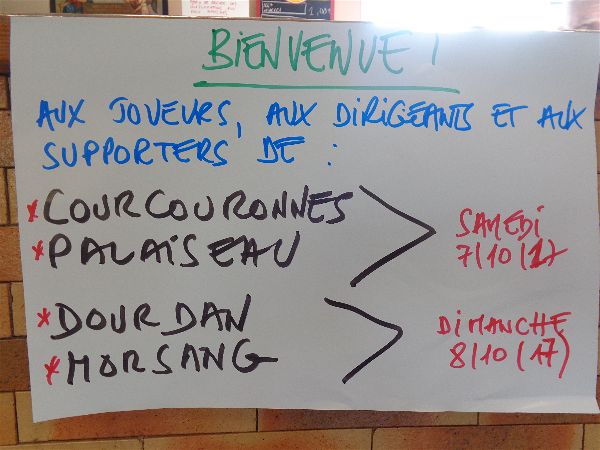 BIENVENUE !
AUX JOUEURS, AUX DIRIGEANTS ET AUX
SUPPORTERS DE :
* COURCOURONNES
* PALAISEAU
SAMEDI
7/10 (17
* DOURDAN
* MORSANG
DIMANCHE
8/10 (17)